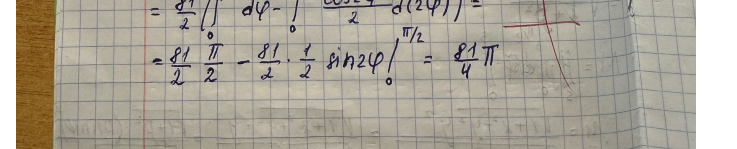 = 81/2 (∫₀ dφ - ∫₀ cos2φ/2 d(2φ)) =
= 81/2 π/2 - 81/2 · 1/2 sin2φ |₀^π/2 = 81/4 π